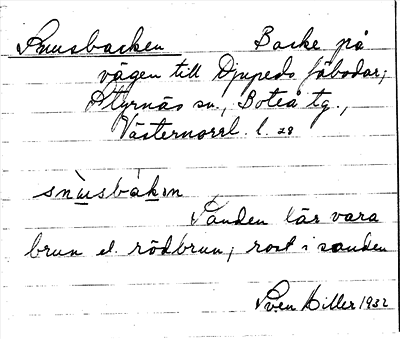 Snusbacken Backe på
vägen till Djupeds fäbodar,
Styrnäs sn., Boteå tg.,
Västernorrl. l.
snùsbàkn
Sanden lär vara
brun el. rödbrun, rost i sanden
Sven Hiller 1932